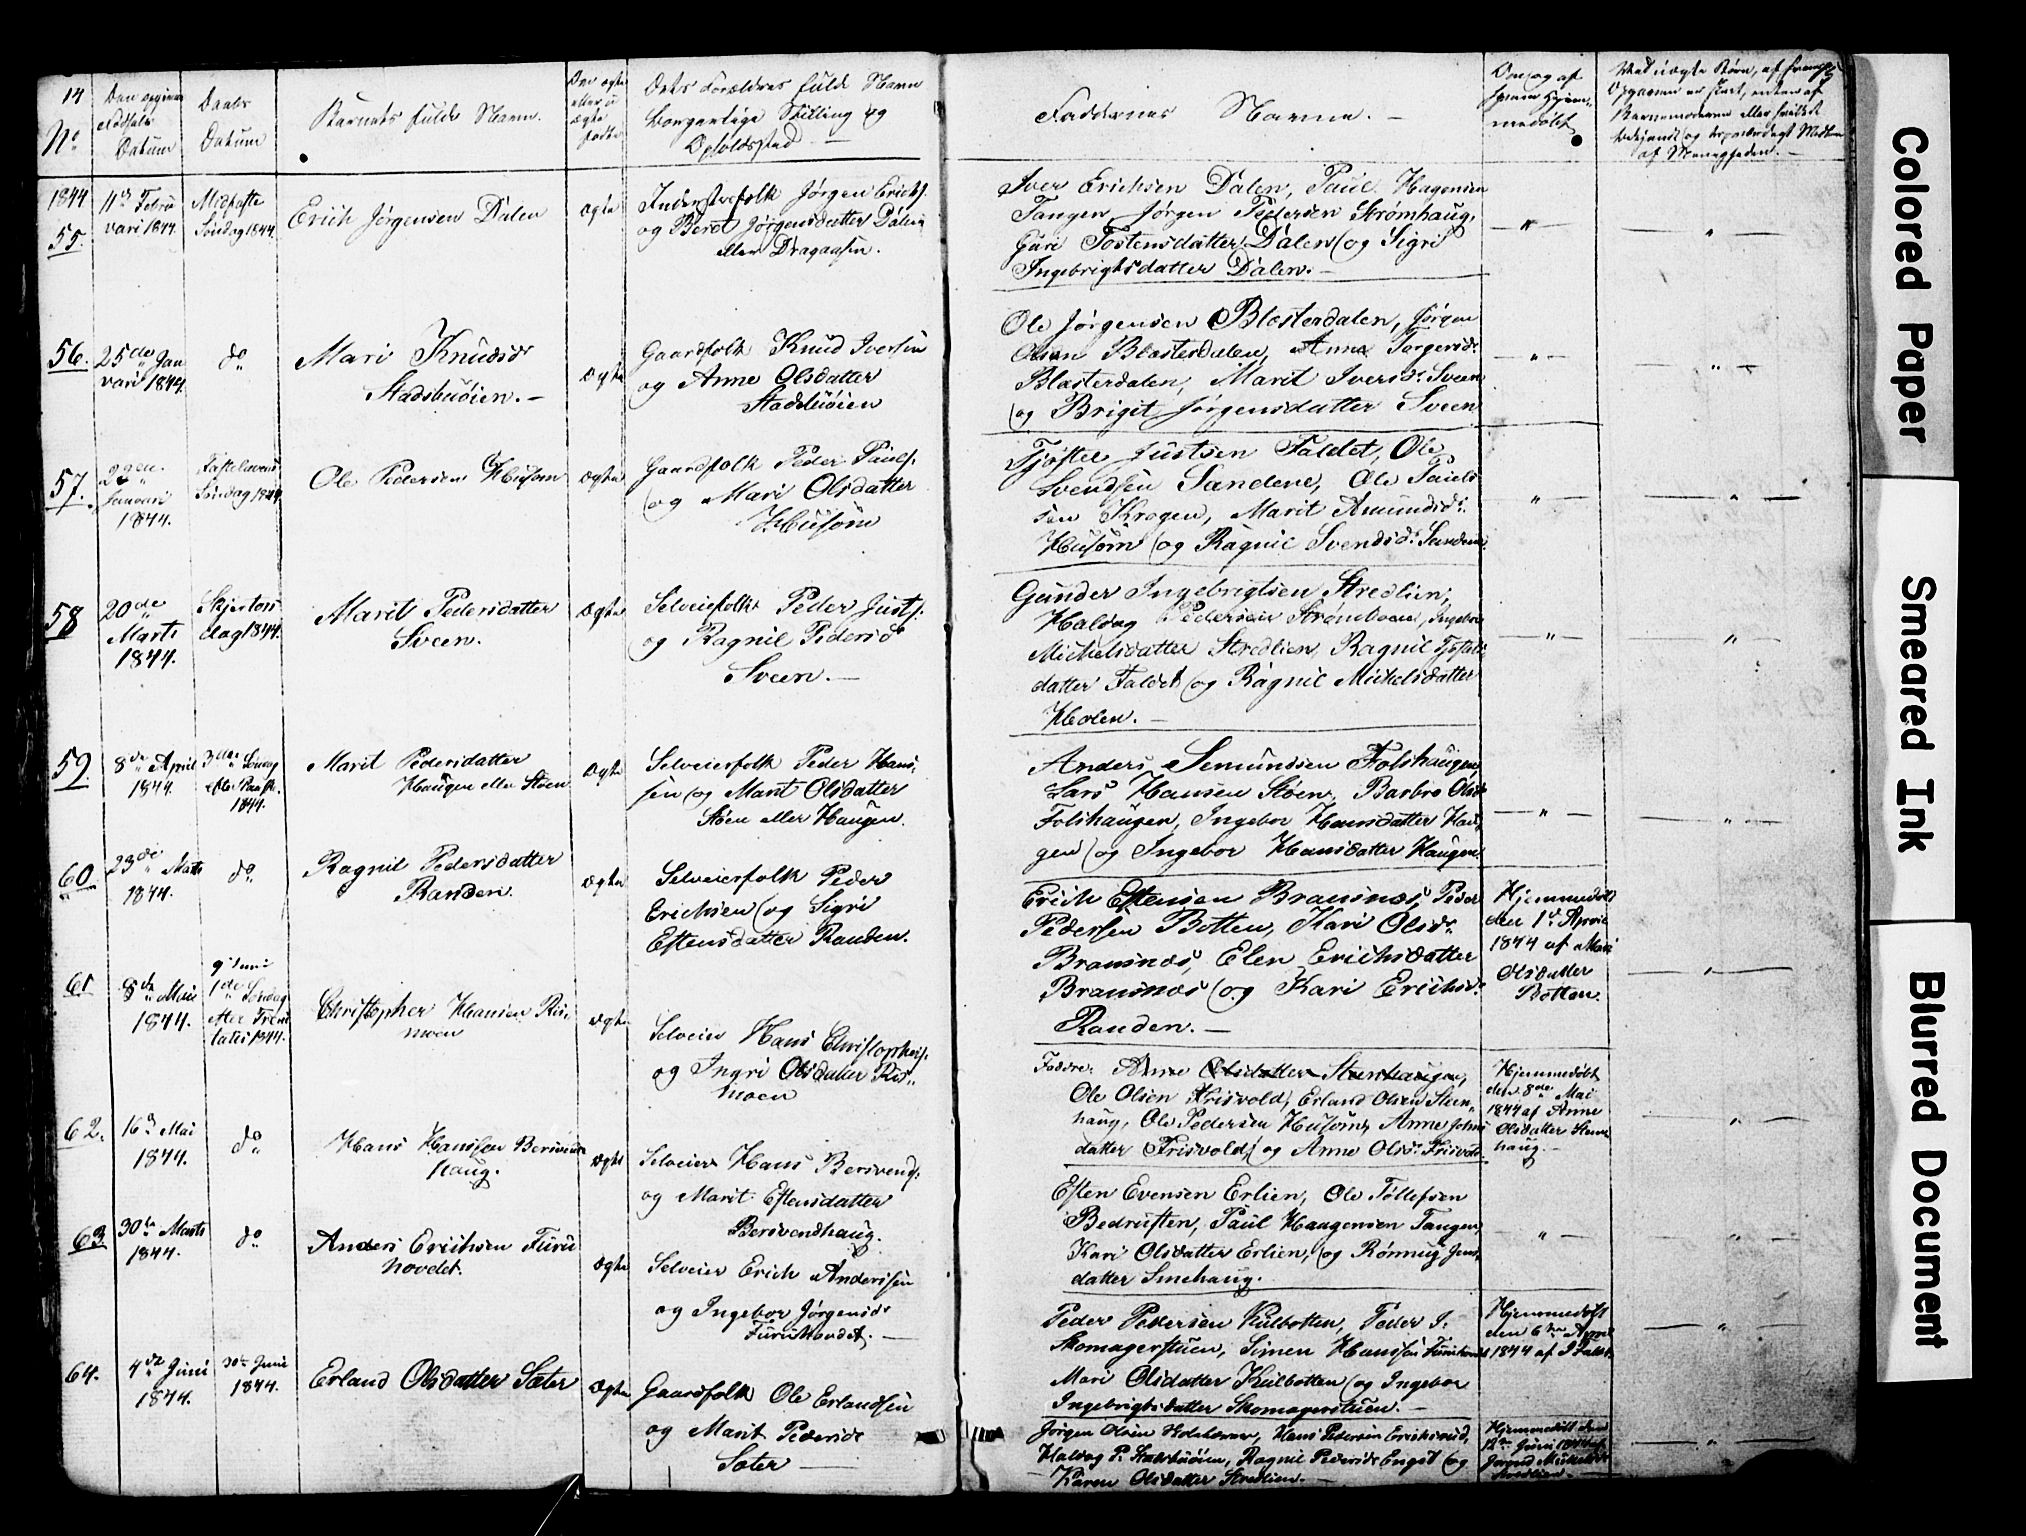 14
No
Den opgivne
Fødsels
Datum
Daabs
Datum
Barnets fulde Navn.
Om ægte
eller u
ægte
født
Dets Forældres fulde Navn
borgerlige Stilling og
Opholdssted —
Faddernes Navne. —
Om og af
hvem hjem-
medøbt
Ved uægte Børn, af hvem
Opgaven er skeet, enten af
Barnemoderen eller hvilket
bekjendt og troværdigt Medlem
af Menigheden. —
1844
55.
11te Febru
vari 1844.
Midfaste
Søndag 1844.
Erich Jørgensen Dalen
ægte
Inderstefolk Jørgen Erichs.
og Beret Jørgensdatter Dalen
eller Dragaasen.
Iver Erichsen Dalen, Paul Hagensen
Tangen, Jørgen Pedersen Strømhaug,
Guri Tostensdatter Dalen og Sigri
Ingebrigtsdatter Dalen. —
56.
25de Jan
vari 1844.
do
Mari Knudsdr
Stadsbuøien. —
Ægte
Gaardfolk Knud Iversen
og Anne Olsdatter
Stadsbuøien
Ole Jørgensen Blæsterdalen, Jørgen
Olsen Blæsterdalen, Anne Torgersdr.
Blæsterdalen, Marit Iversdr. Sveen
og Brigit Jørgensdatter Sveen
57.
2den
Januari
1844.
Fastelavens
Søndag 1844
Ole Pedersen Husom
Ægte
Gaardfolk Peder Pauls.
og Mari Olsdatter
Husom
Tjøstel Justsen Faldet, Ole
Svendsen Sandene, Ole Pauls
sen Krogen, Marit Amundsdr.
Husom og Ragnil Svendsdr. Sandene
58
20de
Marts
1844.
Skjertors
dag 1844.
Marit Pedersdatter
Sveen.
Ægte
Selveiefolk Peder Justs.
og Ragnil Pedersdr
Sveen. —
Gunder Ingebrigtsen Stredlien,
Haldog Pedersen Strømboen, Ingebor
Michelsdatter Stredlien, Ragnil Tjøstels
datter Faldet og Ragnil Michelsdatter
Holen. —
59.
8de April
1844.
3die Søndag
efter Paaske
1844.
Marit Pedersdatter
Haugen eller Støen
Ægte
Selveierfolk Peder Hans
sen og Marit Olsdatter
Støen eller Haugen.
Anders Semundsen Folshaugen,
Lars Hansen Støen, Barbro Olsdr
Folshaugen, Ingebor Hansdatter Hau
gen og Ingebor Hansdatter Haugen.
60.
23de Marts
1844.
do
Ragnil Pedersdatter
Randen.
Ægte
Selveierfolk Peder
Erichsen og Sigri
Estensdatter Randen.
Erich Estensen Bransnæs, Peder
Pedersen Botten, Kari Olsdr.
Bransnæs, Elen Erichsdatter
Bransnæs og Kari Erichsdr.
Randen. —
Hjemmedøbt
den 1ste April
1844 af Mari
Olsdatter
Botten.
61
8de Mai
1844.
9 Juni
1ste Søndag
efter Treni
tatis 1844.
Christopher Hansen Ris
moen
ægte
Selveier Hans Christophers.
og Ingri Olsdatter Ris
moen
Faddre. Anne Olsdatter Stenhaugen,
Ole Olsen Frisvold, Erland Olsen Steen
haug, Ole Pedersen Husom, Anne Johns
datter Frisvold og Anne Olsdr. Frisvold
Hjemmedøbt
den 8de Mai
1844 af Anne
Olsdatter Steen
haug. —
62.
16de Mai
1844.
do
Hans Hanssen Bersvend
haug.
Ægte
Selveier Hans Bersvends.
og Marit Estensdatter
Bersvendhaug.
Esten Evensen Erlien, Ole Tollefsen
Bedrusten, Paul Haagensen Tangen,
Kari Olsdatter Erlien, og Rønnug Jens
datter Smehaug.
63.
30te Marts
1844.
do
Anders Erichsen Furu
hovdet.
Ægte
Selveier Erich Anderssen
og Ingebor Jørgensdr
Furuhovdet. —
Peder Pedersen Kulbotten, Peder I.
Skomagerstuen, Simen Hanssen Furuhovdet
Mari Olsdatter Kulbotten og Ingebor
Ingebrigtsdatter Skomagerstuen. —
Hjemmedøbt
den 6te April
1844 af
64.
4de Juni
1844.
30te Juni
1844.
Erland Olsdatter Sæter
Ægte
Gaardfolk Ole Erlandsen
og Marit Pedersdr
Sæter —
Jørgen Olsen Holshoven, Hans Pedersen Erichsrud,
Haldog P. Stadsbuøien, Ragnil Pedersdr Enget og
Karen Olsdatter Stredlien. —
Hjemmedøbt den
12te Juni 1844 af
Jørgen
Stredlien. —
Colored Paper
Smeared Ink
Blurred Document